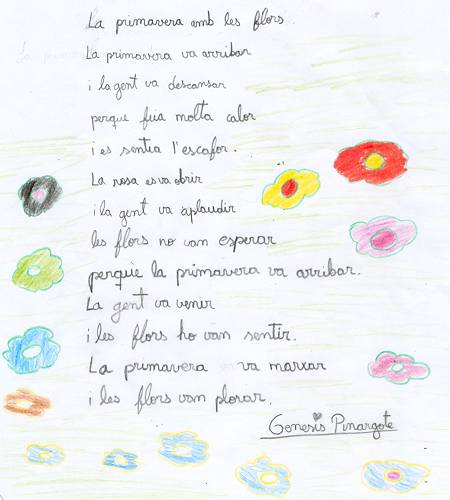 La primavera amb les flors.
La primavera va arribar
i la gent va descansar
perque feia molta calor
i es sentia l'escafor.
La rosa es va obrir
i la gent va aplaudir
les flors no van esperar
perquè la primavera va arribar.
La gent va venir
i les flors ho van sentir.
La primavera va marxar
i les flors van plorar.
Genesis Pinargote